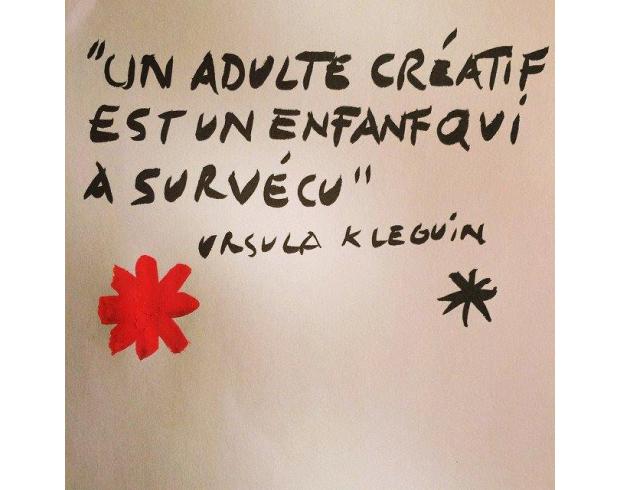 "UN ADULTE CRÉATIF
EST UN ENFANF QUI
À SURVÉCU"
URSULA K LEGUIN